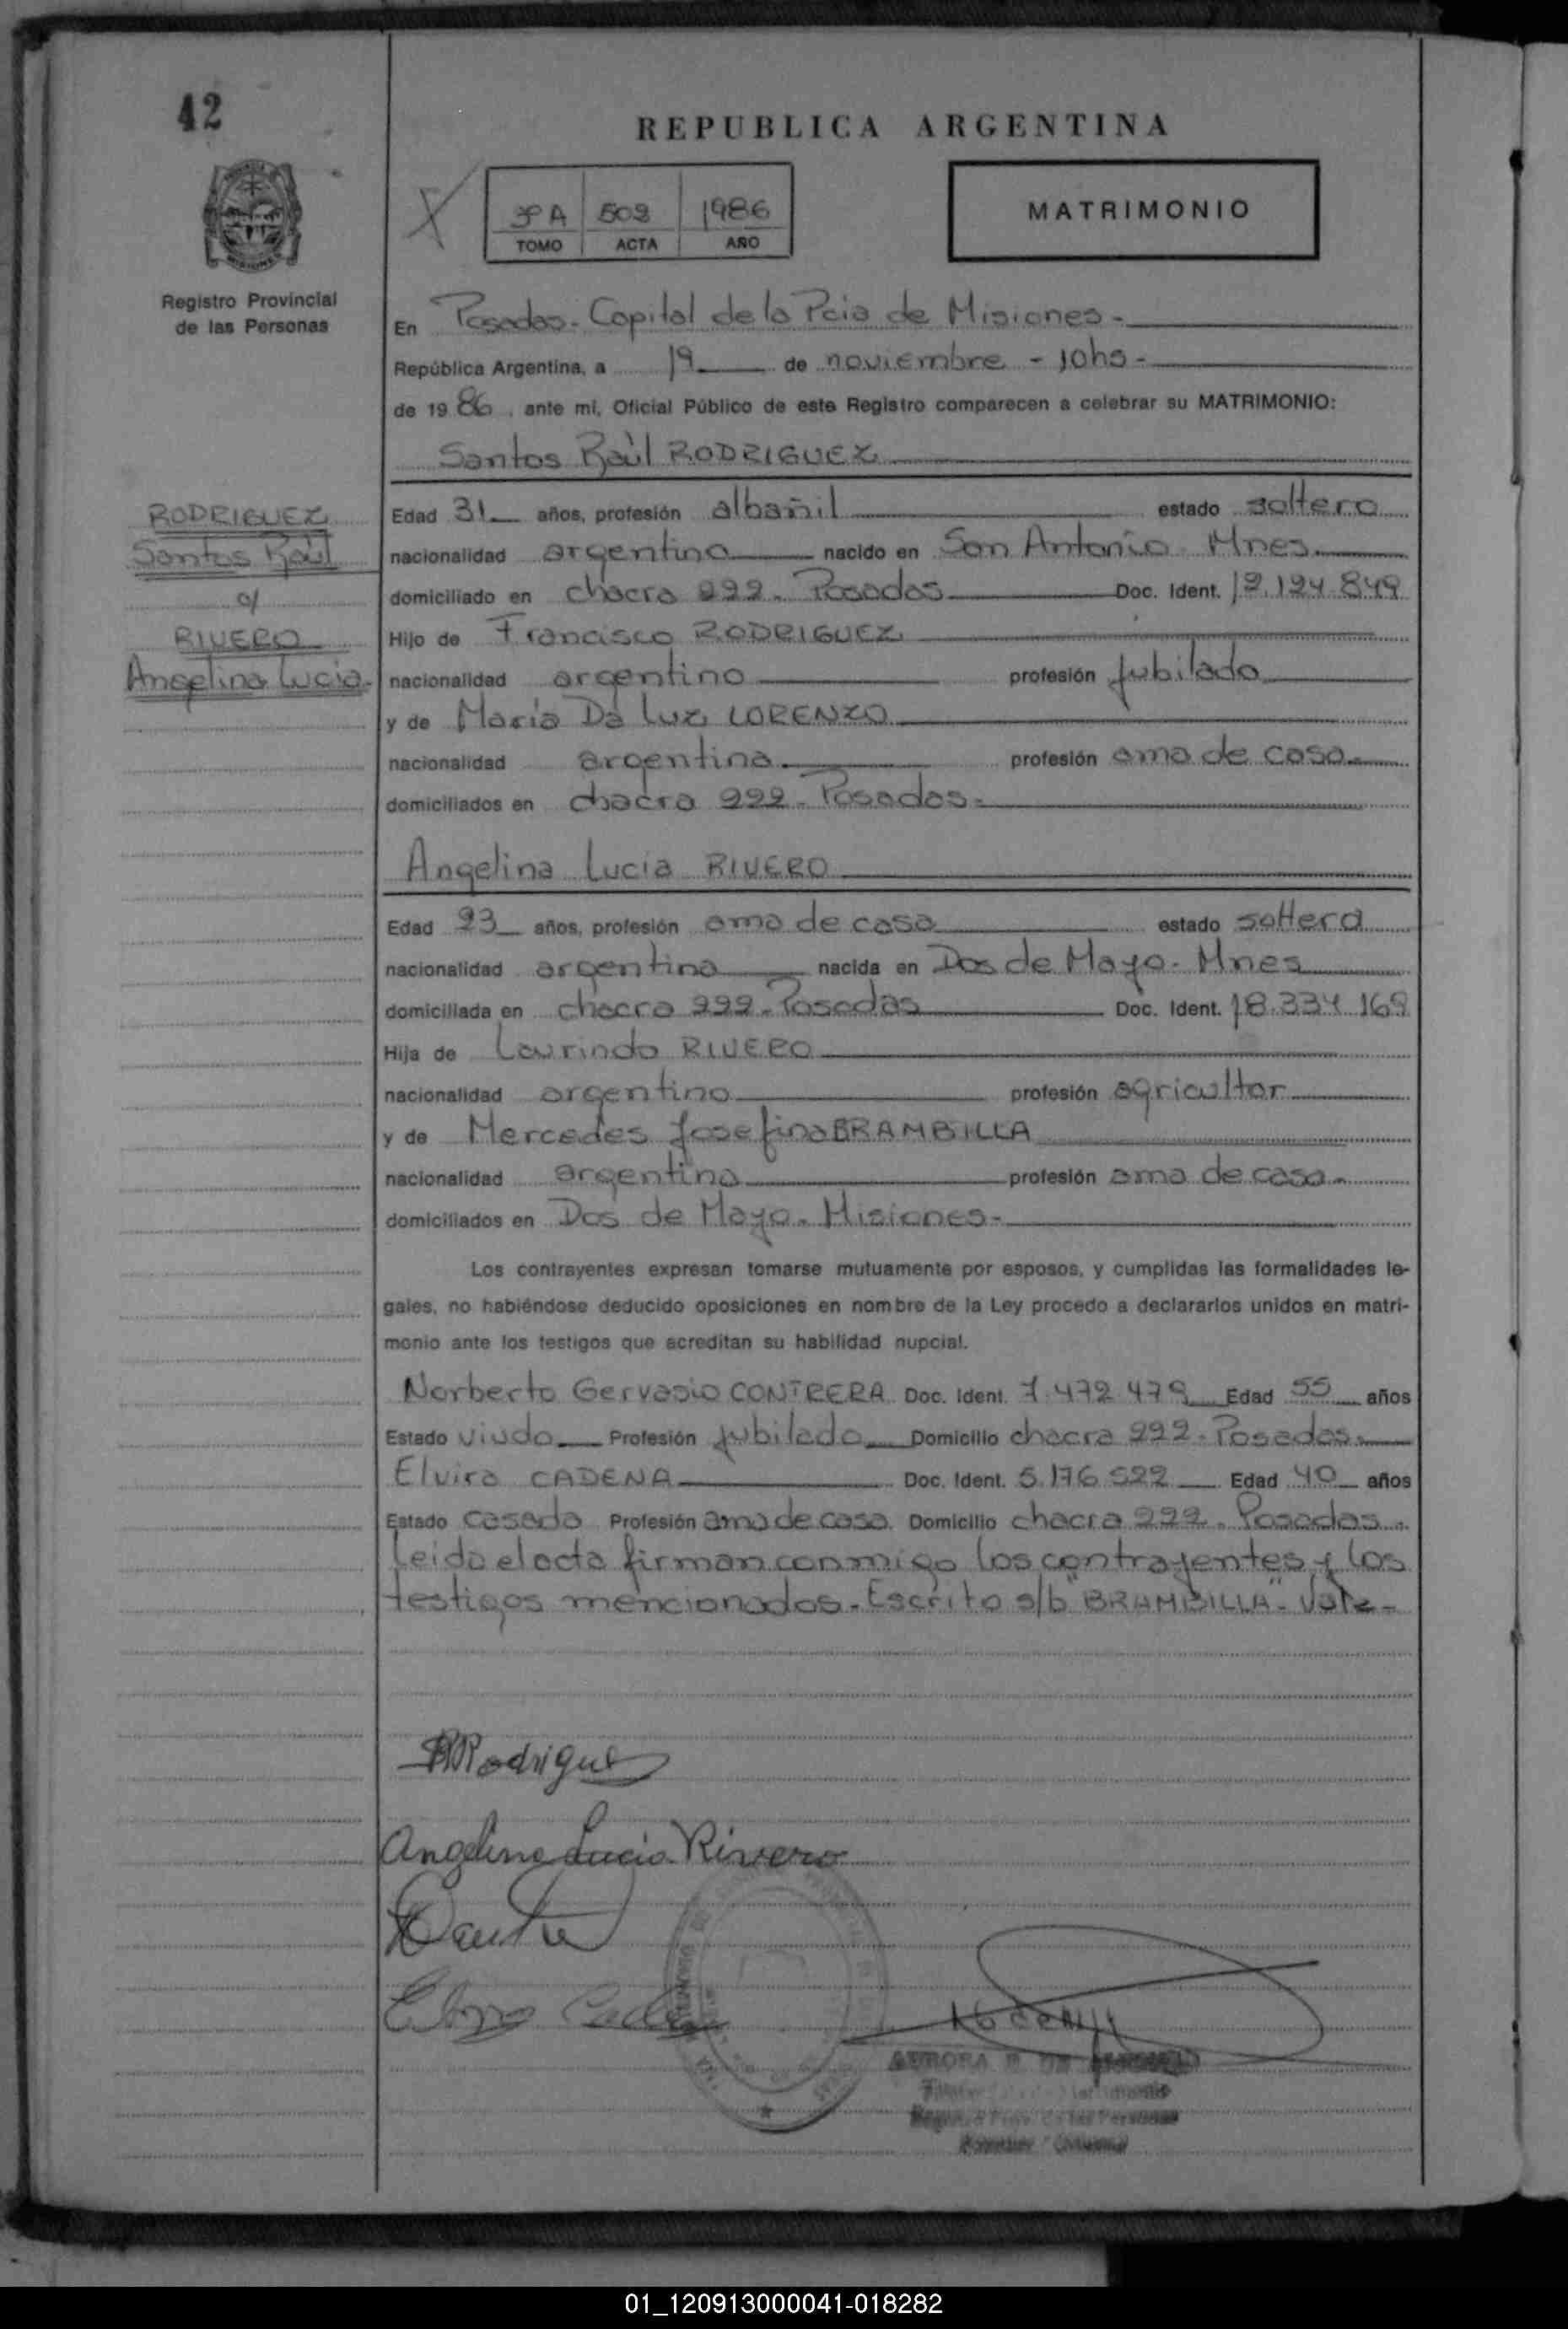 42
REPUBLICA ARGENTINA
3º A 502 1986
TOMO ACTA AÑO
MATRIMONIO
Registro Provincial
de las Personas
En Posadas - Capital de la Pcia de Misiones -
República Argentina, a 19 de noviembre - 10hs -
de 1986, ante mí, Oficial Público de este Registro comparecen a celebrar su MATRIMONIO:
Santos Raùl RODRIGUEZ
RODRIGUEZ
Santos Raùl
c/
RIVERO
Angelina Lucia-
Edad 31 años, profesión albañil estado soltero
nacionalidad argentina nacido en San Antonio - Mnes
domiciliado en chacra 222 - Posadas Doc. Ident. 12.124.849
Hijo de Francisco RODRIGUEZ
nacionalidad argentino profesión jubilado
y de Maria Da Luz LORENZO
nacionalidad argentina profesión ama de casa -
domiciliados en chacra 222 - Posadas -
Angelina Lucia RIVERO
Edad 23 años, profesión ama de casa estado soltera
nacionalidad argentina nacida en Dos de Mayo - Mnes
domiciliada en chacra 222 - Posadas Doc. Ident. 18.334.169
Hija de Laurindo RIVERO
nacionalidad argentino profesión agricultor
y de Mercedes Josefina BRAMBILLA
nacionalidad argentina profesión ama de casa -
domiciliados en Dos de Mayo - Misiones -
Los contrayentes expresan tomarse mutuamente por esposos, y cumplidas las formalidades le-
gales, no habiéndose deducido oposiciones en nombre de la Ley procedo a declararlos unidos en matri-
monio ante los testigos que acreditan su habilidad nupcial.
Norberto Gervasio CONTRERA Doc. Ident. 7.472.479 Edad 55 años
Estado viudo Profesión jubilado Domicilio chacra 222 - Posadas -
Elvira CADENA Doc. Ident. 5.176.522 Edad 40 años
Estado casada Profesión ama de casa Domicilio chacra 222 - Posadas -
Leida el acta firman conmigo los contrayentes y los
testigos mencionados - Escrito s/b "BRAMBILLA" - Vale -
Rodriguez
Angelina Lucia Rivero
AURORA
01_120913000041-018282